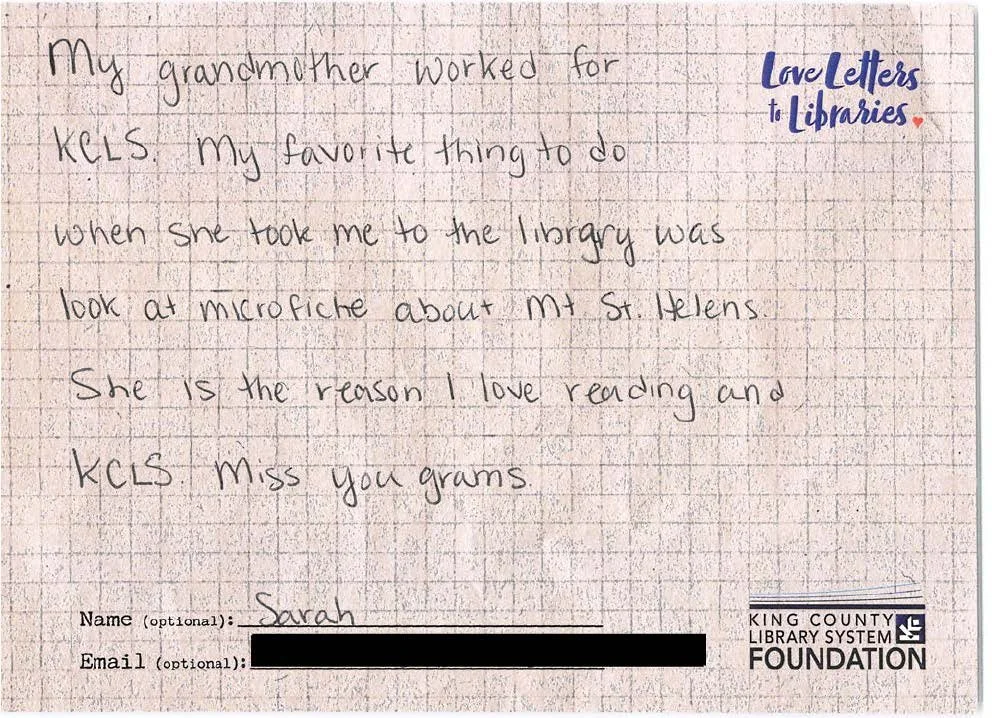 My grandmother worked for
Love Letters
to Libraries.
KCLS. My favorite thing to do
when she took me to the library was
look at microfiche about Mt St. Helens.
She is the reason I love reading and
KCLS. Miss you grams.
Name (optional): Sarah
Email (optional):
KING COUNTY
LIBRARY SYSTEM
FOUNDATION